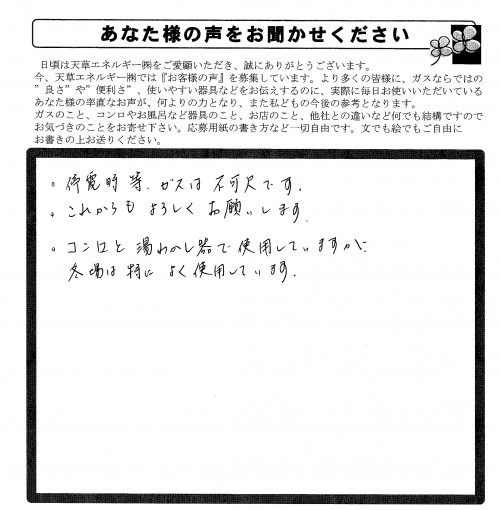 あなた様の声をお聞かせください
日頃は天草エネルギー㈱をご愛顧いただき、誠にありがとうございます。
今、天草エネルギー㈱では『お客様の声』を募集しています。より多くの皆様に、ガスならではの
”良さ”や”便利さ”、使いやすい器具などをお伝えするのに、実際に毎日お使いいただいている
あなた様の率直なお声が、何よりの力となり、また私どもの今後の参考となります。
ガスのこと、コンロやお風呂など器具のこと、お店のこと、他社との違いなど何でも結構ですので
お気づきのことをお寄せ下さい。応募用紙の書き方など一切自由です。文でも絵でもご自由に
お書きの上お送りください。
。停電時等、ガスは不可欠です。
。これからもよろしくお願いします。
。コンロと湯わかし器で使用していますが、
冬場は特によく使用しています。